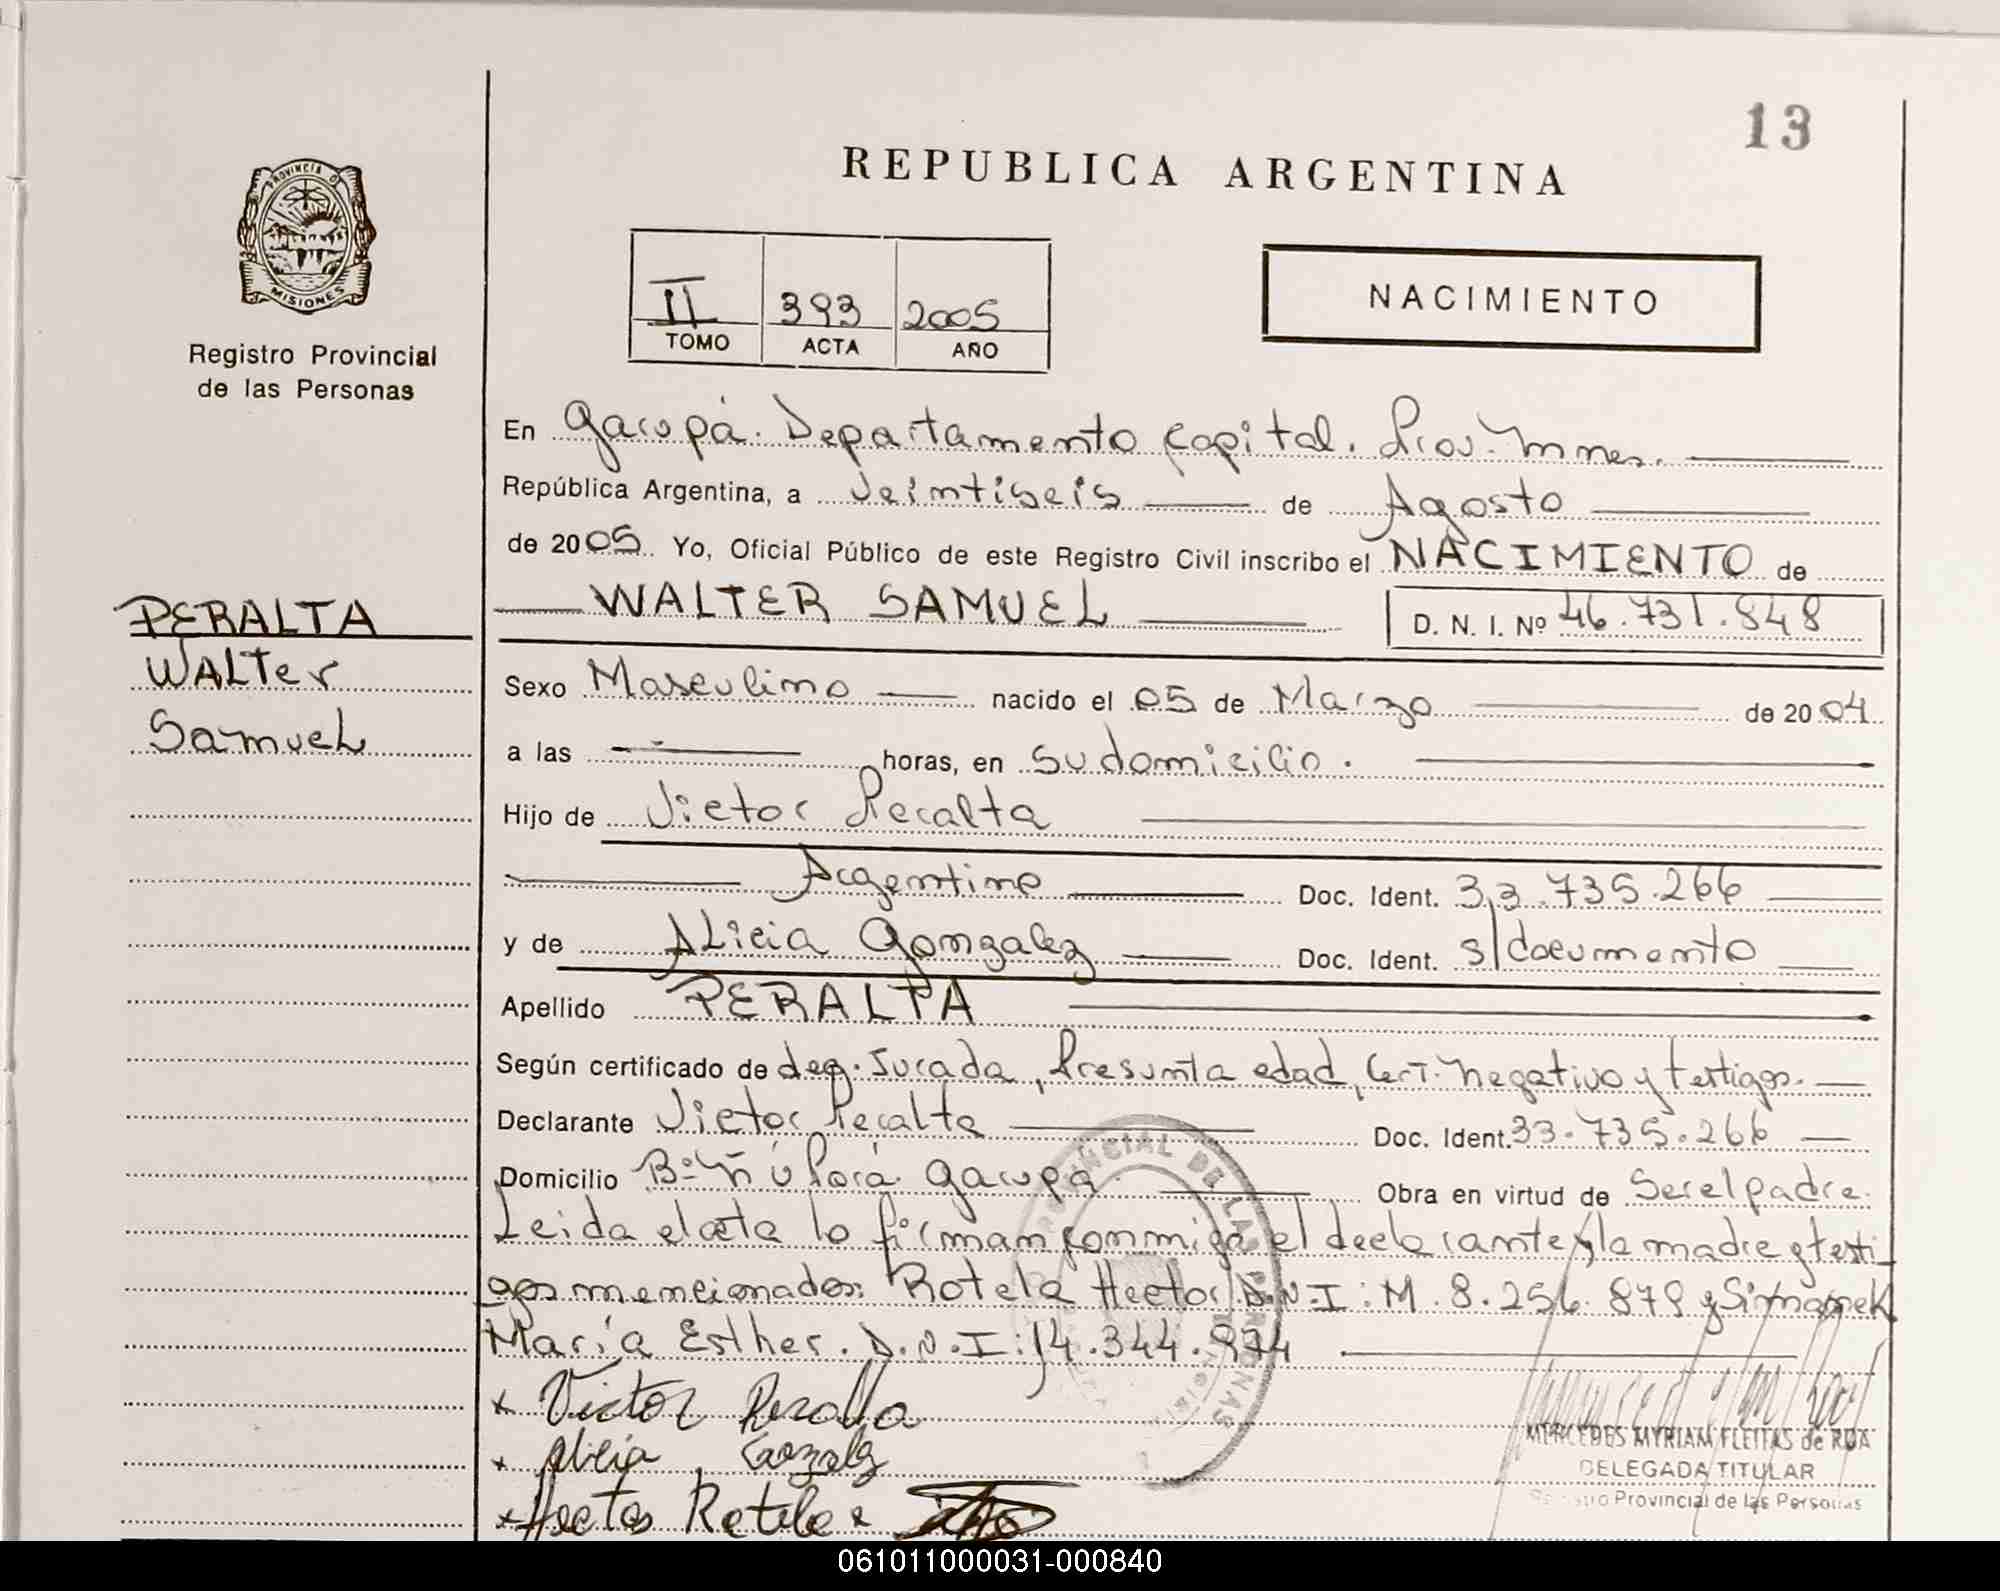 13
REPUBLICA ARGENTINA
PROVINCIA D
MISIONES
Registro Provincial
de las Personas
II 393 2005
TOMO ACTA AÑO
NACIMIENTO
En Garupá. Departamento Capital. Prov. Mnes.
República Argentina, a Veintiseis de Agosto
de 2005 Yo, Oficial Público de este Registro Civil inscribo el NACIMIENTO de
WALTER SAMUEL D. N. I. Nº 46.731.848
PERALTA
WALTer
SamueL
Sexo Masculino nacido el 05 de Marzo de 2004
a las horas, en su domicilio.
Hijo de Victor Peralta
Argentino Doc. Ident. 33.735.266
y de ALicia Gonzalez Doc. Ident. s/documento
Apellido PERALTA
Según certificado de deq. Jurada, Presunta edad, Cert. negativo y testigos.
Declarante Victor Peralta Doc. Ident. 33.735.266
Domicilio Bº Ñ ú Porá Garupá Obra en virtud de Ser el padre.
Leida el acta lo firman conmigo el declarante y la madre y testi
gos mencionados: Rotela Hector D.N.I: M. 8.256.879 y
María Esther. D.N.I: 14.344.974
x Victor Peralta
x Alicia Gonzalez
x Hector Rotela x
PROVINCIAL DE LAS PERSONAS
MERCEDES MYRIAM FLEITAS de ROA
DELEGADA TITULAR
Registro Provincial de las Personas
061011000031-000840